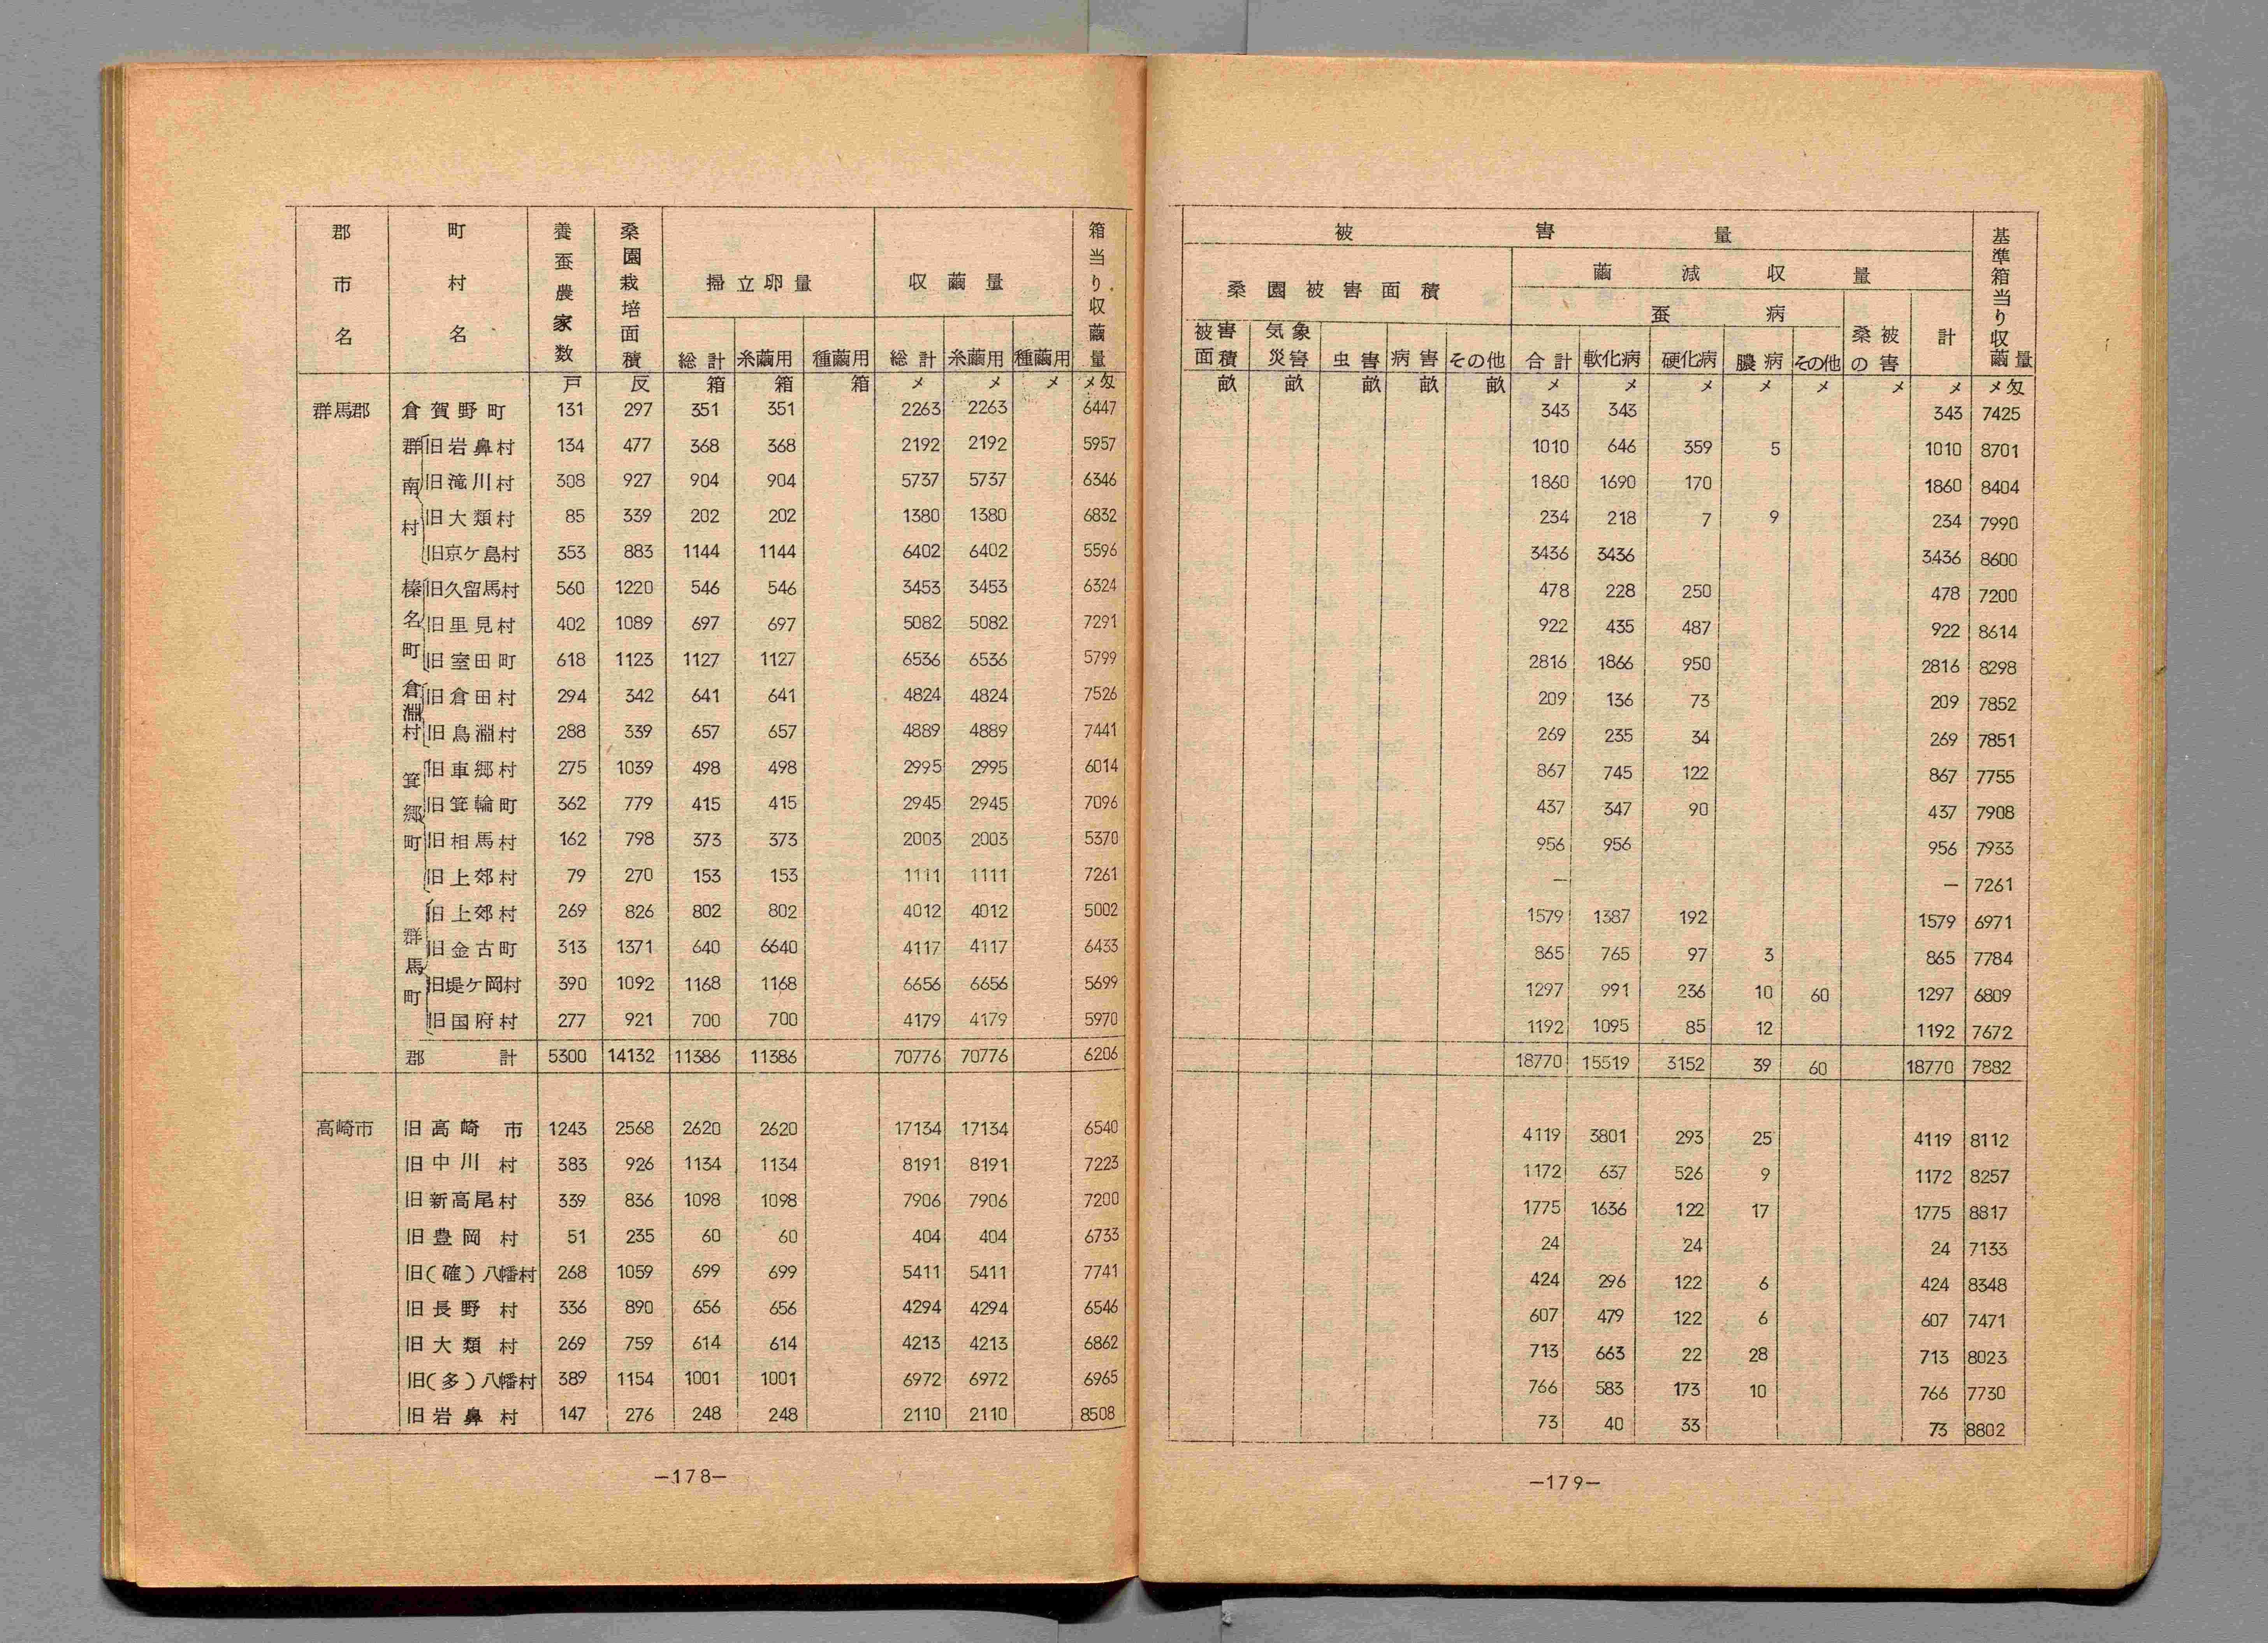 郡市名 町村名 養蚕農家数 桑園栽培面積 掃立卵量 収繭量 箱当り収繭量
総計 糸繭用 種繭用 総計 糸繭用 種繭用
戸 反 箱 箱 箱 〆 〆 〆 〆匁
群馬郡 倉賀野町 131 297 351 351 2263 2263 6447
群南村 旧岩鼻村 134 477 368 368 2192 2192 5957
旧滝川村 308 927 904 904 5737 5737 6346
旧大類村 85 339 202 202 1380 1380 6832
旧京ケ島村 353 883 1144 1144 6402 6402 5596
榛名町 旧久留馬村 560 1220 546 546 3453 3453 6324
旧里見村 402 1089 697 697 5082 5082 7291
旧室田町 618 1123 1127 1127 6536 6536 5799
倉淵村 旧倉田村 294 342 641 641 4824 4824 7526
旧烏淵村 288 339 657 657 4889 4889 7441
箕郷町 旧車郷村 275 1039 498 498 2995 2995 6014
旧箕輪町 362 779 415 415 2945 2945 7096
旧相馬村 162 798 373 373 2003 2003 5370
旧上郊村 79 270 153 153 1111 1111 7261
群馬町 旧上郊村 269 826 802 802 4012 4012 5002
旧金古町 313 1371 640 6640 4117 4117 6433
旧堤ケ岡村 390 1092 1168 1168 6656 6656 5699
旧国府村 277 921 700 700 4179 4179 5970
郡計 5300 14132 11386 11386 70776 70776 6206
高崎市 旧高崎市 1243 2568 2620 2620 17134 17134 6540
旧中川村 383 926 1134 1134 8191 8191 7223
旧新高尾村 339 836 1098 1098 7906 7906 7200
旧豊岡村 51 235 60 60 404 404 6733
旧(確)八幡村 268 1059 699 699 5411 5411 7741
旧長野村 336 890 656 656 4294 4294 6546
旧大類村 269 759 614 614 4213 4213 6862
旧(多)八幡村 389 1154 1001 1001 6972 6972 6965
旧岩鼻村 147 276 248 248 2110 2110 8508
—178—
被害量 基準箱当り収繭量
桑園被害面積 繭減収量
蚕病 桑被の害 計
被害面積 気象災害 虫害 病害 その他 合計 軟化病 硬化病 膿病 その他
畝 畝 畝 畝 畝 〆 〆 〆 〆 〆 〆 〆 〆匁
343 343 343 7425
1010 646 359 5 1010 8701
1860 1690 170 1860 8404
234 218 7 9 234 7990
3436 3436 3436 8600
478 228 250 478 7200
922 435 487 922 8614
2816 1866 950 2816 8298
209 136 73 209 7852
269 235 34 269 7851
867 745 122 867 7755
437 347 90 437 7908
956 956 956 7933
— — 7261
1579 1387 192 1579 6971
865 765 97 3 865 7784
1297 991 236 10 60 1297 6809
1192 1095 85 12 1192 7672
18770 15519 3152 39 60 18770 7882
4119 3801 293 25 4119 8112
1172 637 526 9 1172 8257
1775 1636 122 17 1775 8817
24 24 24 7133
424 296 122 6 424 8348
607 479 122 6 607 7471
713 663 22 28 713 8023
766 583 173 10 766 7730
73 40 33 73 8802
—179—